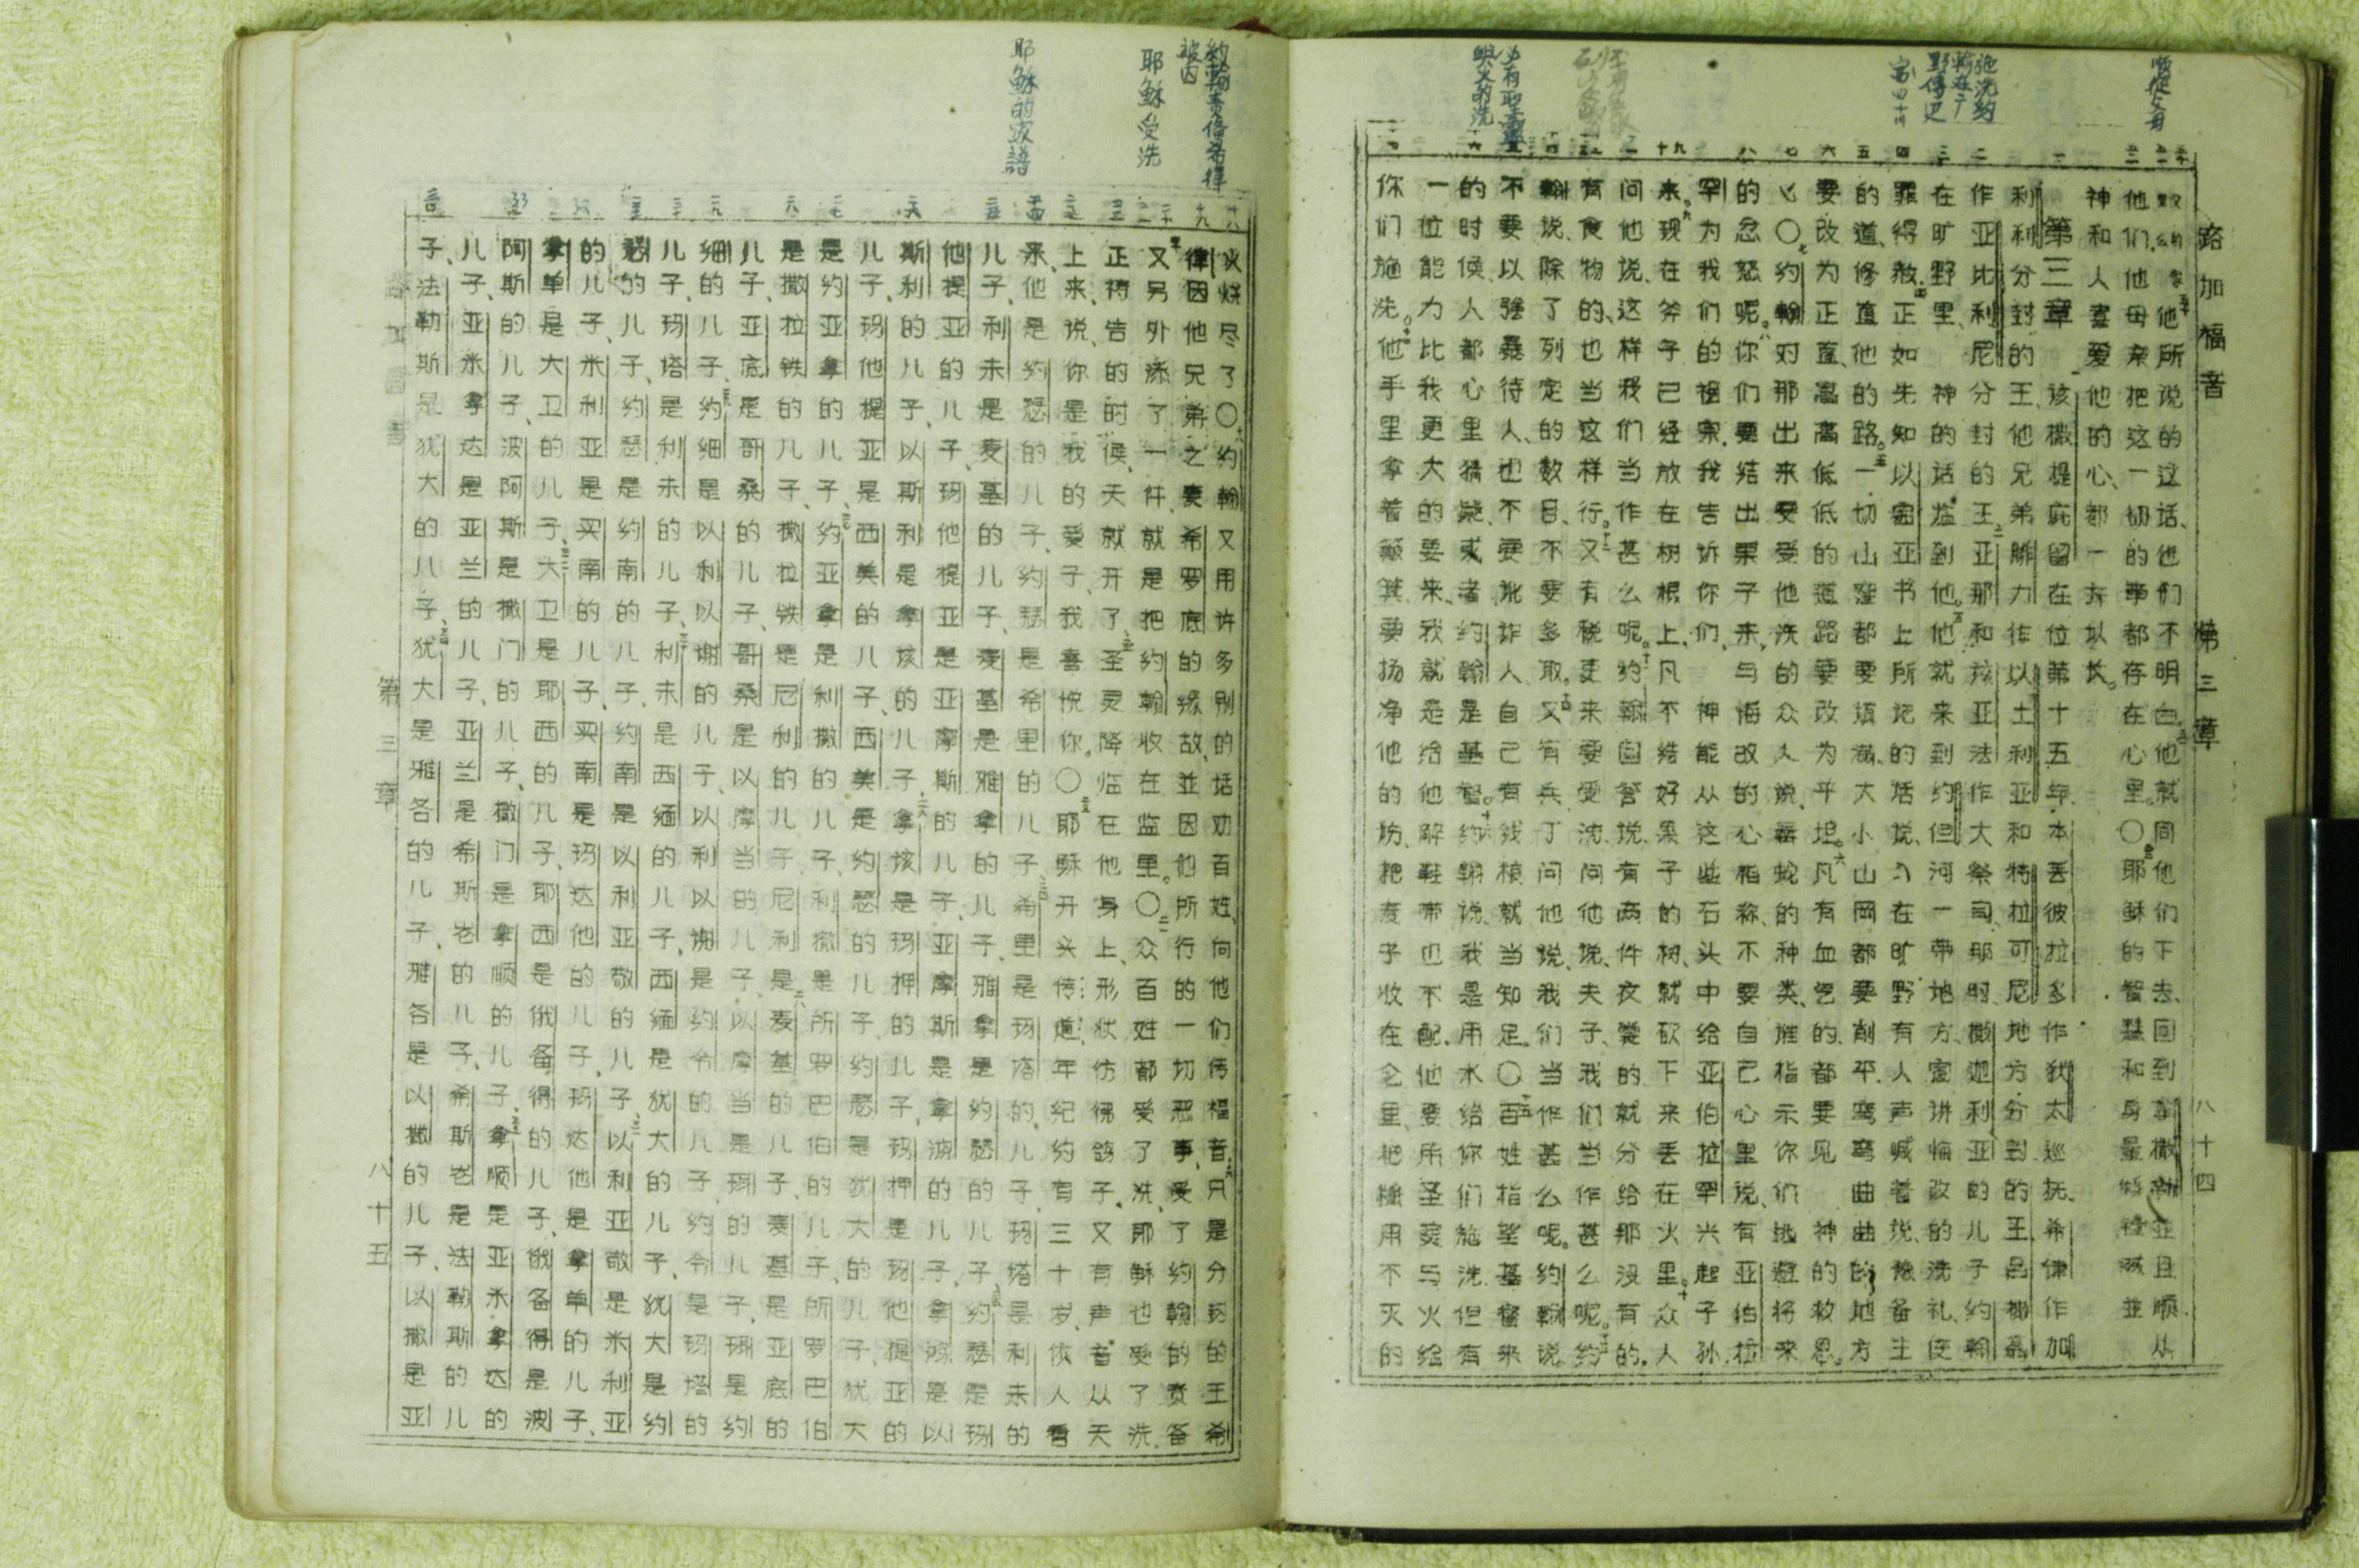 顺從父母
施洗約
翰在广
野傳道
必有聖靈
與火的洗
路加福音 第三章 八十四
他所说的这话、他们不明白。他就同他们下去、回到拿撒勒並且顺从
他们、他母亲把这一切的事都存在心里。〇耶稣的智慧和身量並
神和人喜爱他的心、都一齐以长。
第三章
该撒提庇留在位第十五年、本丢彼拉多作犹太巡抚、希律作加
利利分封的王、他兄弟腓力作以土利亚和特拉可尼地方分封的王、吕
作亚比利尼分封的王、亚那和该亚法作大祭司、那时、撒迦利亚的儿子约翰
在旷野里、神的话临到他。他就来到约但河一带地方、宣讲悔改的洗礼、使
罪得赦。正如先知以赛亚书上所记的话、说、在旷野有人声喊着说、豫备主
的道、修直他的路。一切山洼都要填满、大小山冈都要削平、弯弯曲曲的地方
要改为正直、高高低低的道路要改为平坦。凡有血气的、都要见 神的救恩。
〇约翰对那出来要受他洗的众人说、毒蛇的种类、谁指示你们逃避将来
的忿怒呢。你们要结出果子来、与悔改的心相称、不要自己心里说、有亚伯拉
罕为我们的祖宗、我告诉你们、 神能从这些石头中给亚伯拉罕兴起子孙
来。现在斧子已经放在树根上、凡不结好果子的树、就砍下来丢在火里。众人
问他说、这样我们当作甚么呢。约翰回答说、有两件衣裳的、就分给那没有的、
有食物的、也当这样行。又有税吏来要受洗、问他说、夫子、我们当作甚么呢。约
翰说、除了列定的数目、不要多取。又有兵丁问他说、我们当作甚么呢。约翰说
不要以强暴待人、也不要讹诈人、自己有钱粮就当知足。〇百姓指望基督来
的时候、人都心里猜疑、或者约翰是基督。约翰说、我是用水给你们施洗、但有
一位能力比我更大的要来、我就是给他解鞋带也不配、他要用圣灵与火给
你们施洗。他手里拿着簸箕、要扬净他的场、把麦子收在仑里、把糠用不灭的
約翰責備希律
被囚
耶稣受洗
耶稣的家譜
火烧尽了〇约翰又用许多别的话劝百姓、向他们传福音。只是分封的王希
律因他兄弟之妻希罗底的缘故、並因他所行的一切恶事、受了约翰的责备
又另外添了一件、就是把约翰收在监里。〇众百姓都受了洗、耶稣也受了洗、
正祷告的时候、天就开了、圣灵降临在他身上、形状仿彿鸽子、又有声音从天
上来、说、你是我的爱子、我喜悦你。〇耶稣开头传道、年纪约有三十岁、依人看
来、他是约瑟的儿子、约瑟是希里的儿子、希里是玛塔的儿子、玛塔是利未的
儿子、利未是麦基的儿子、麦基是雅拿的儿子、雅拿是约瑟的儿子、约瑟是玛
他提亚的儿子、玛他提亚是亚摩斯的儿子、亚摩斯是拿鸿的儿子、拿鸿是以
斯利的儿子、以斯利是拿该的儿子、拿该是玛押的儿子、玛押是玛他提亚的
儿子、玛他提亚是西美的儿子、西美是约瑟的儿子、约瑟是犹大的儿子、犹大
是约亚拿的儿子、约亚拿是利撒的儿子、利撒是所罗巴伯的儿子、所罗巴伯
是撒拉铁的儿子、撒拉铁是尼利的儿子、尼利是麦基的儿子、麦基是亚底的
儿子、亚底是哥桑的儿子、哥桑是以摩当的儿子、以摩当是珥的儿子、珥是约
细的儿子、约细是以利以谢的儿子、以利以谢是约令的儿子、约令是玛塔的
儿子、玛塔是利未的儿子、利未是西缅的儿子、西缅是犹大的儿子、犹大是约
瑟的儿子、约瑟是约南的儿子、约南是以利亚敬的儿子、以利亚敬是米利亚
的儿子、米利亚是买南的儿子、买南是玛达他的儿子、玛达他是拿单的儿子、
拿单是大卫的儿子、大卫是耶西的儿子、耶西是俄备得的儿子、俄备得是波
阿斯的儿子、波阿斯是撒门的儿子、撒门是拿顺的儿子、拿顺是亚米拿达的
儿子、亚米拿达是亚兰的儿子、亚兰是希斯老的儿子、希斯老是法勒斯的儿
子、法勒斯是犹大的儿子、犹大是雅各的儿子、雅各是以撒的儿子、以撒是亚
路加福音 第三章 八十五